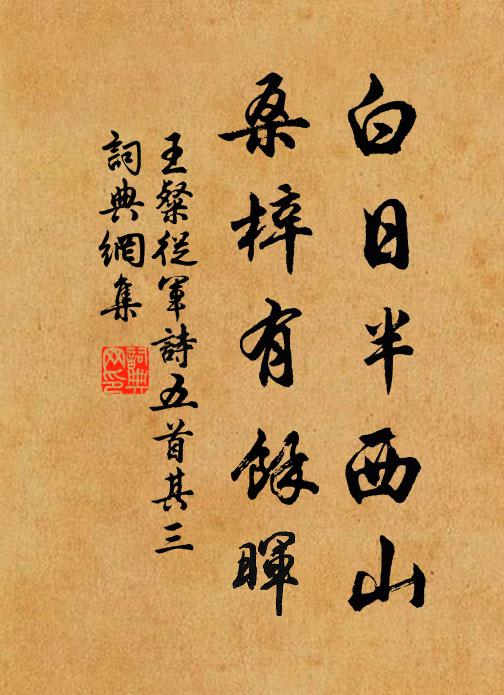 白日半西山
桑梓有餘暉
王粲從軍詩五首其三
詞典網集
詞典
网印